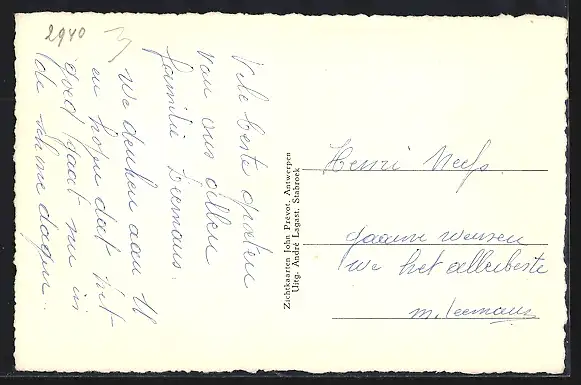 2940
Vele beste groten
van ons allen
familie Leemans.
We denken aan U
en hopen dat het
goed gaat nu in
de schone dagen.
Zichtkaarten John Prévot, Antwerpen
Uitg. André Lagast, Stabroek
Henri Neefs
gaarne wensen
we het allerbeste
M. Leemans